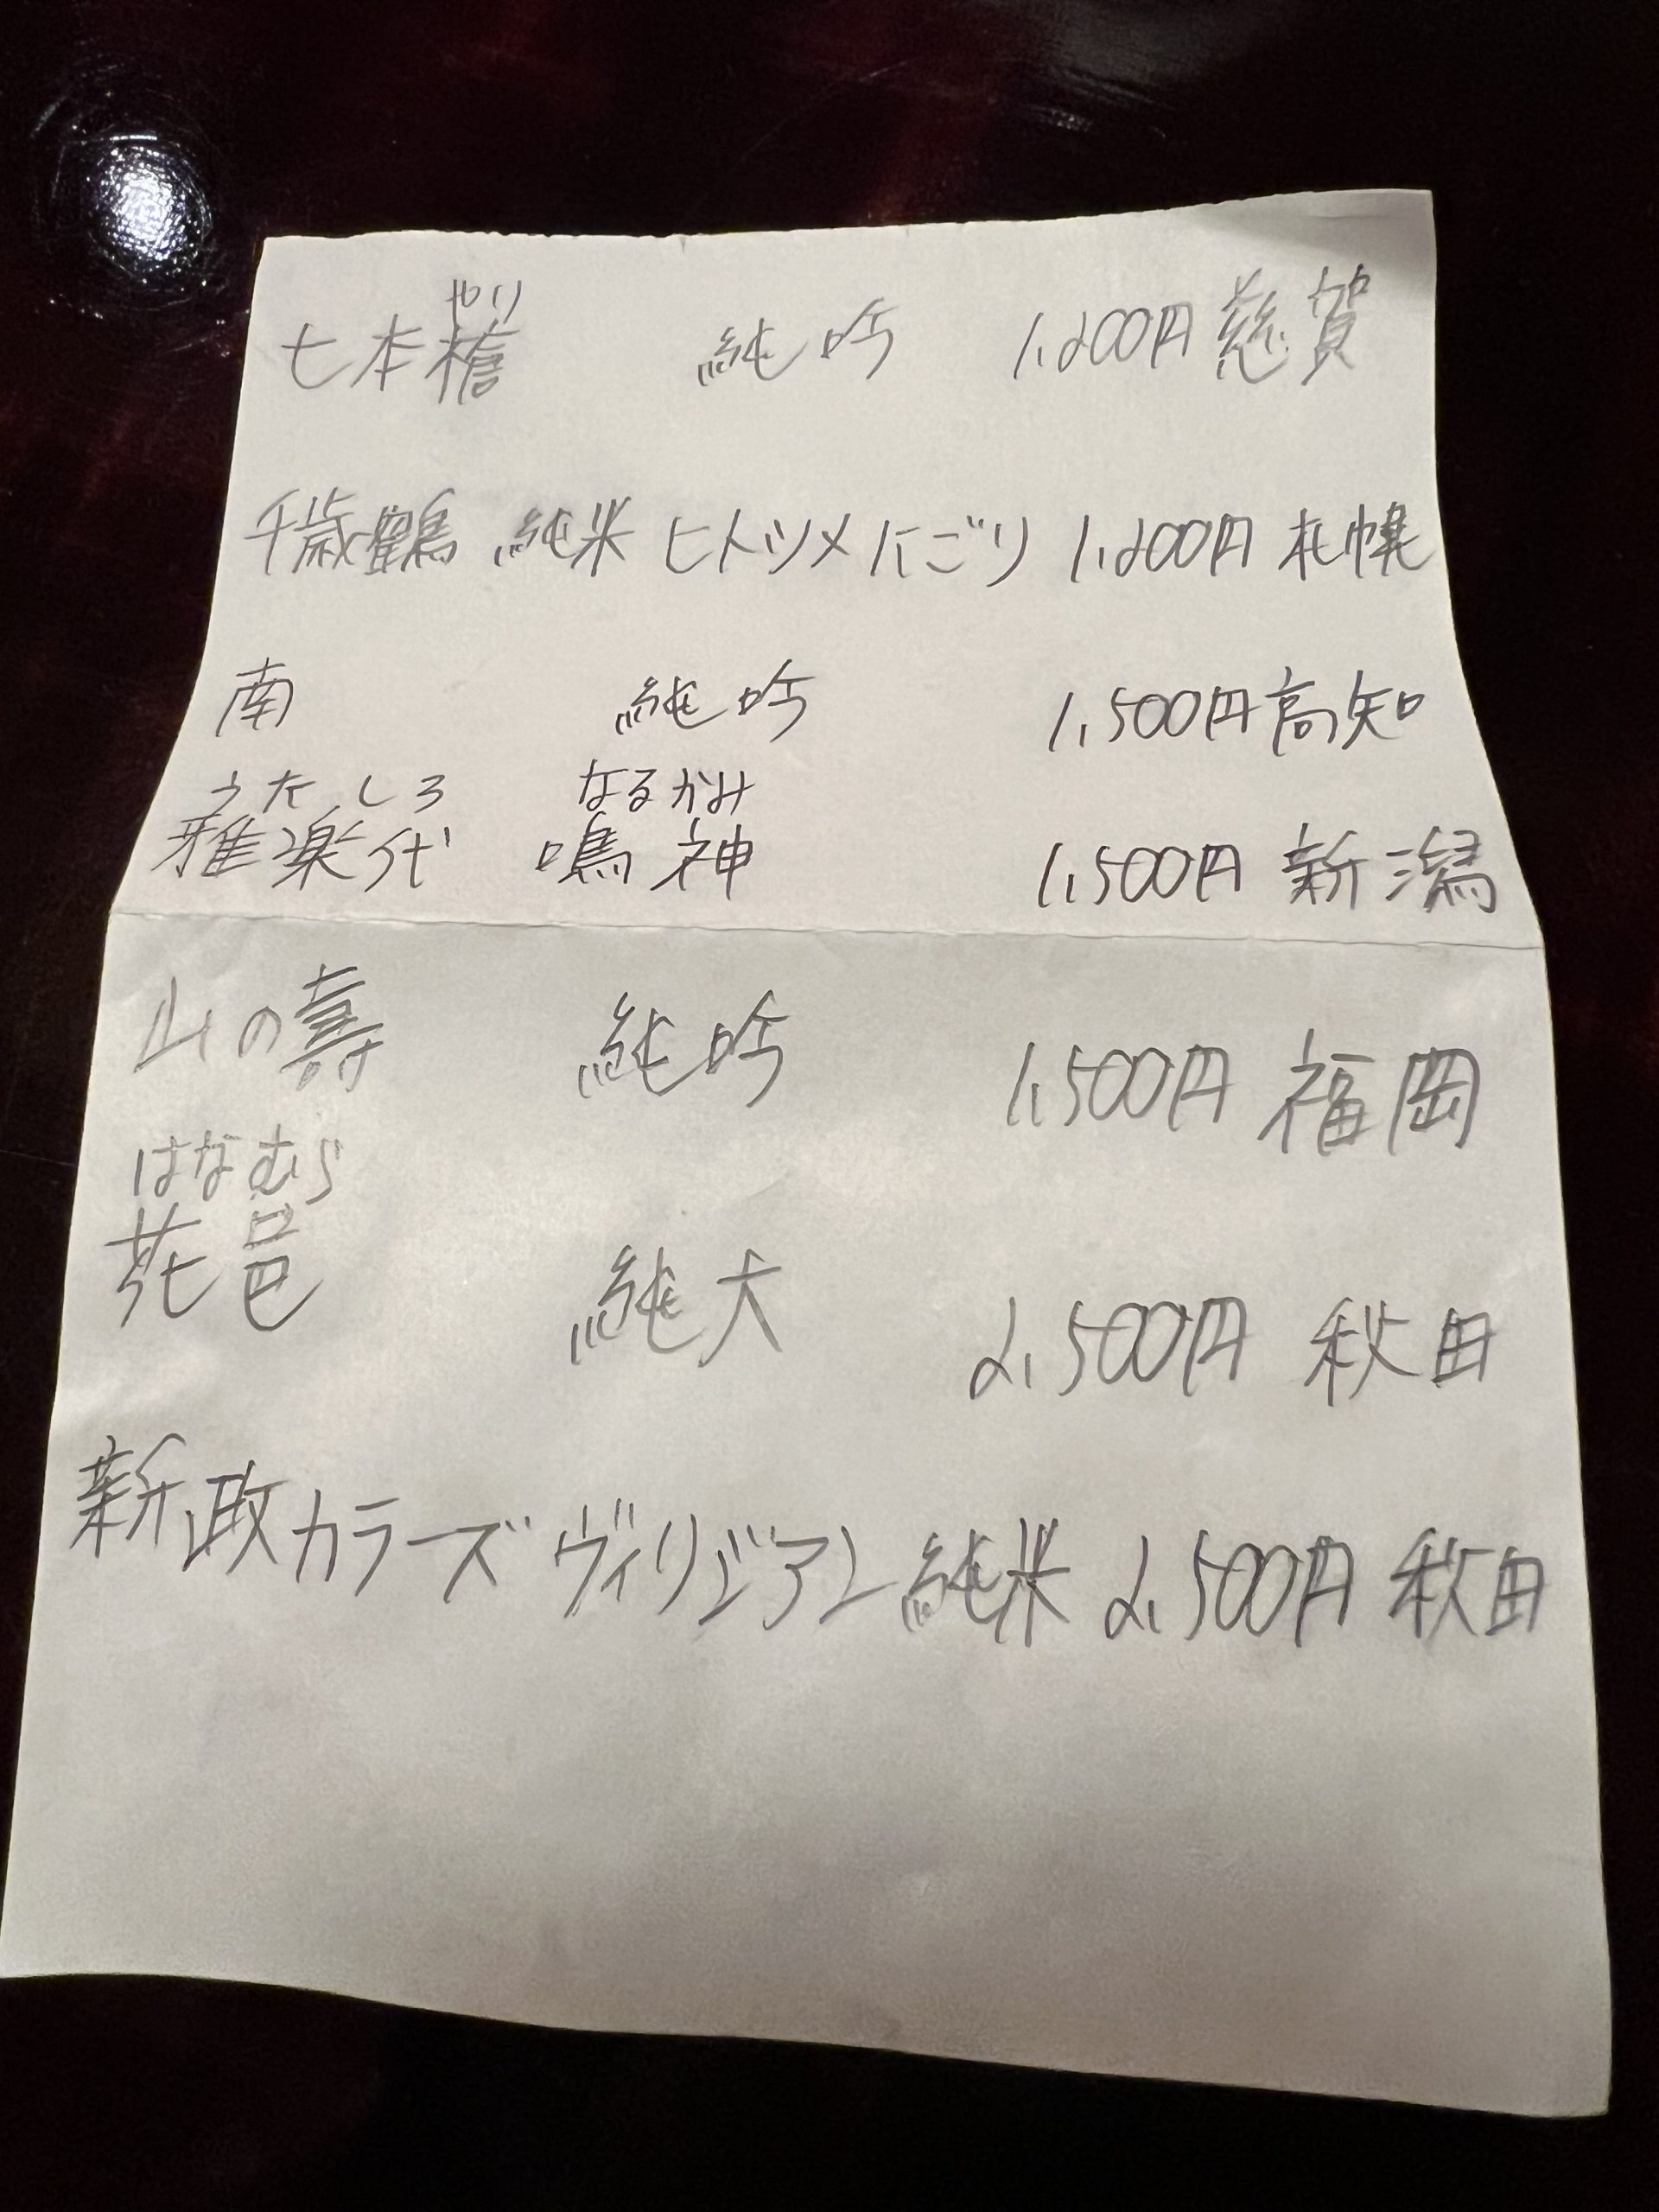 やり
七本槍 純吟 1,200円 慈賀
千歳鶴 純米 ヒトツメにごり 1,200円 札幌
南 純吟 1,500円 高知
うたしろ なるかみ
雅楽代 鳴神 1,500円 新潟
山の壽 純吟 1,500円 福岡
はなむら
花邑 純大 2,500円 秋田
新政カラーズ ヴィリジアン 純米 2,500円 秋田